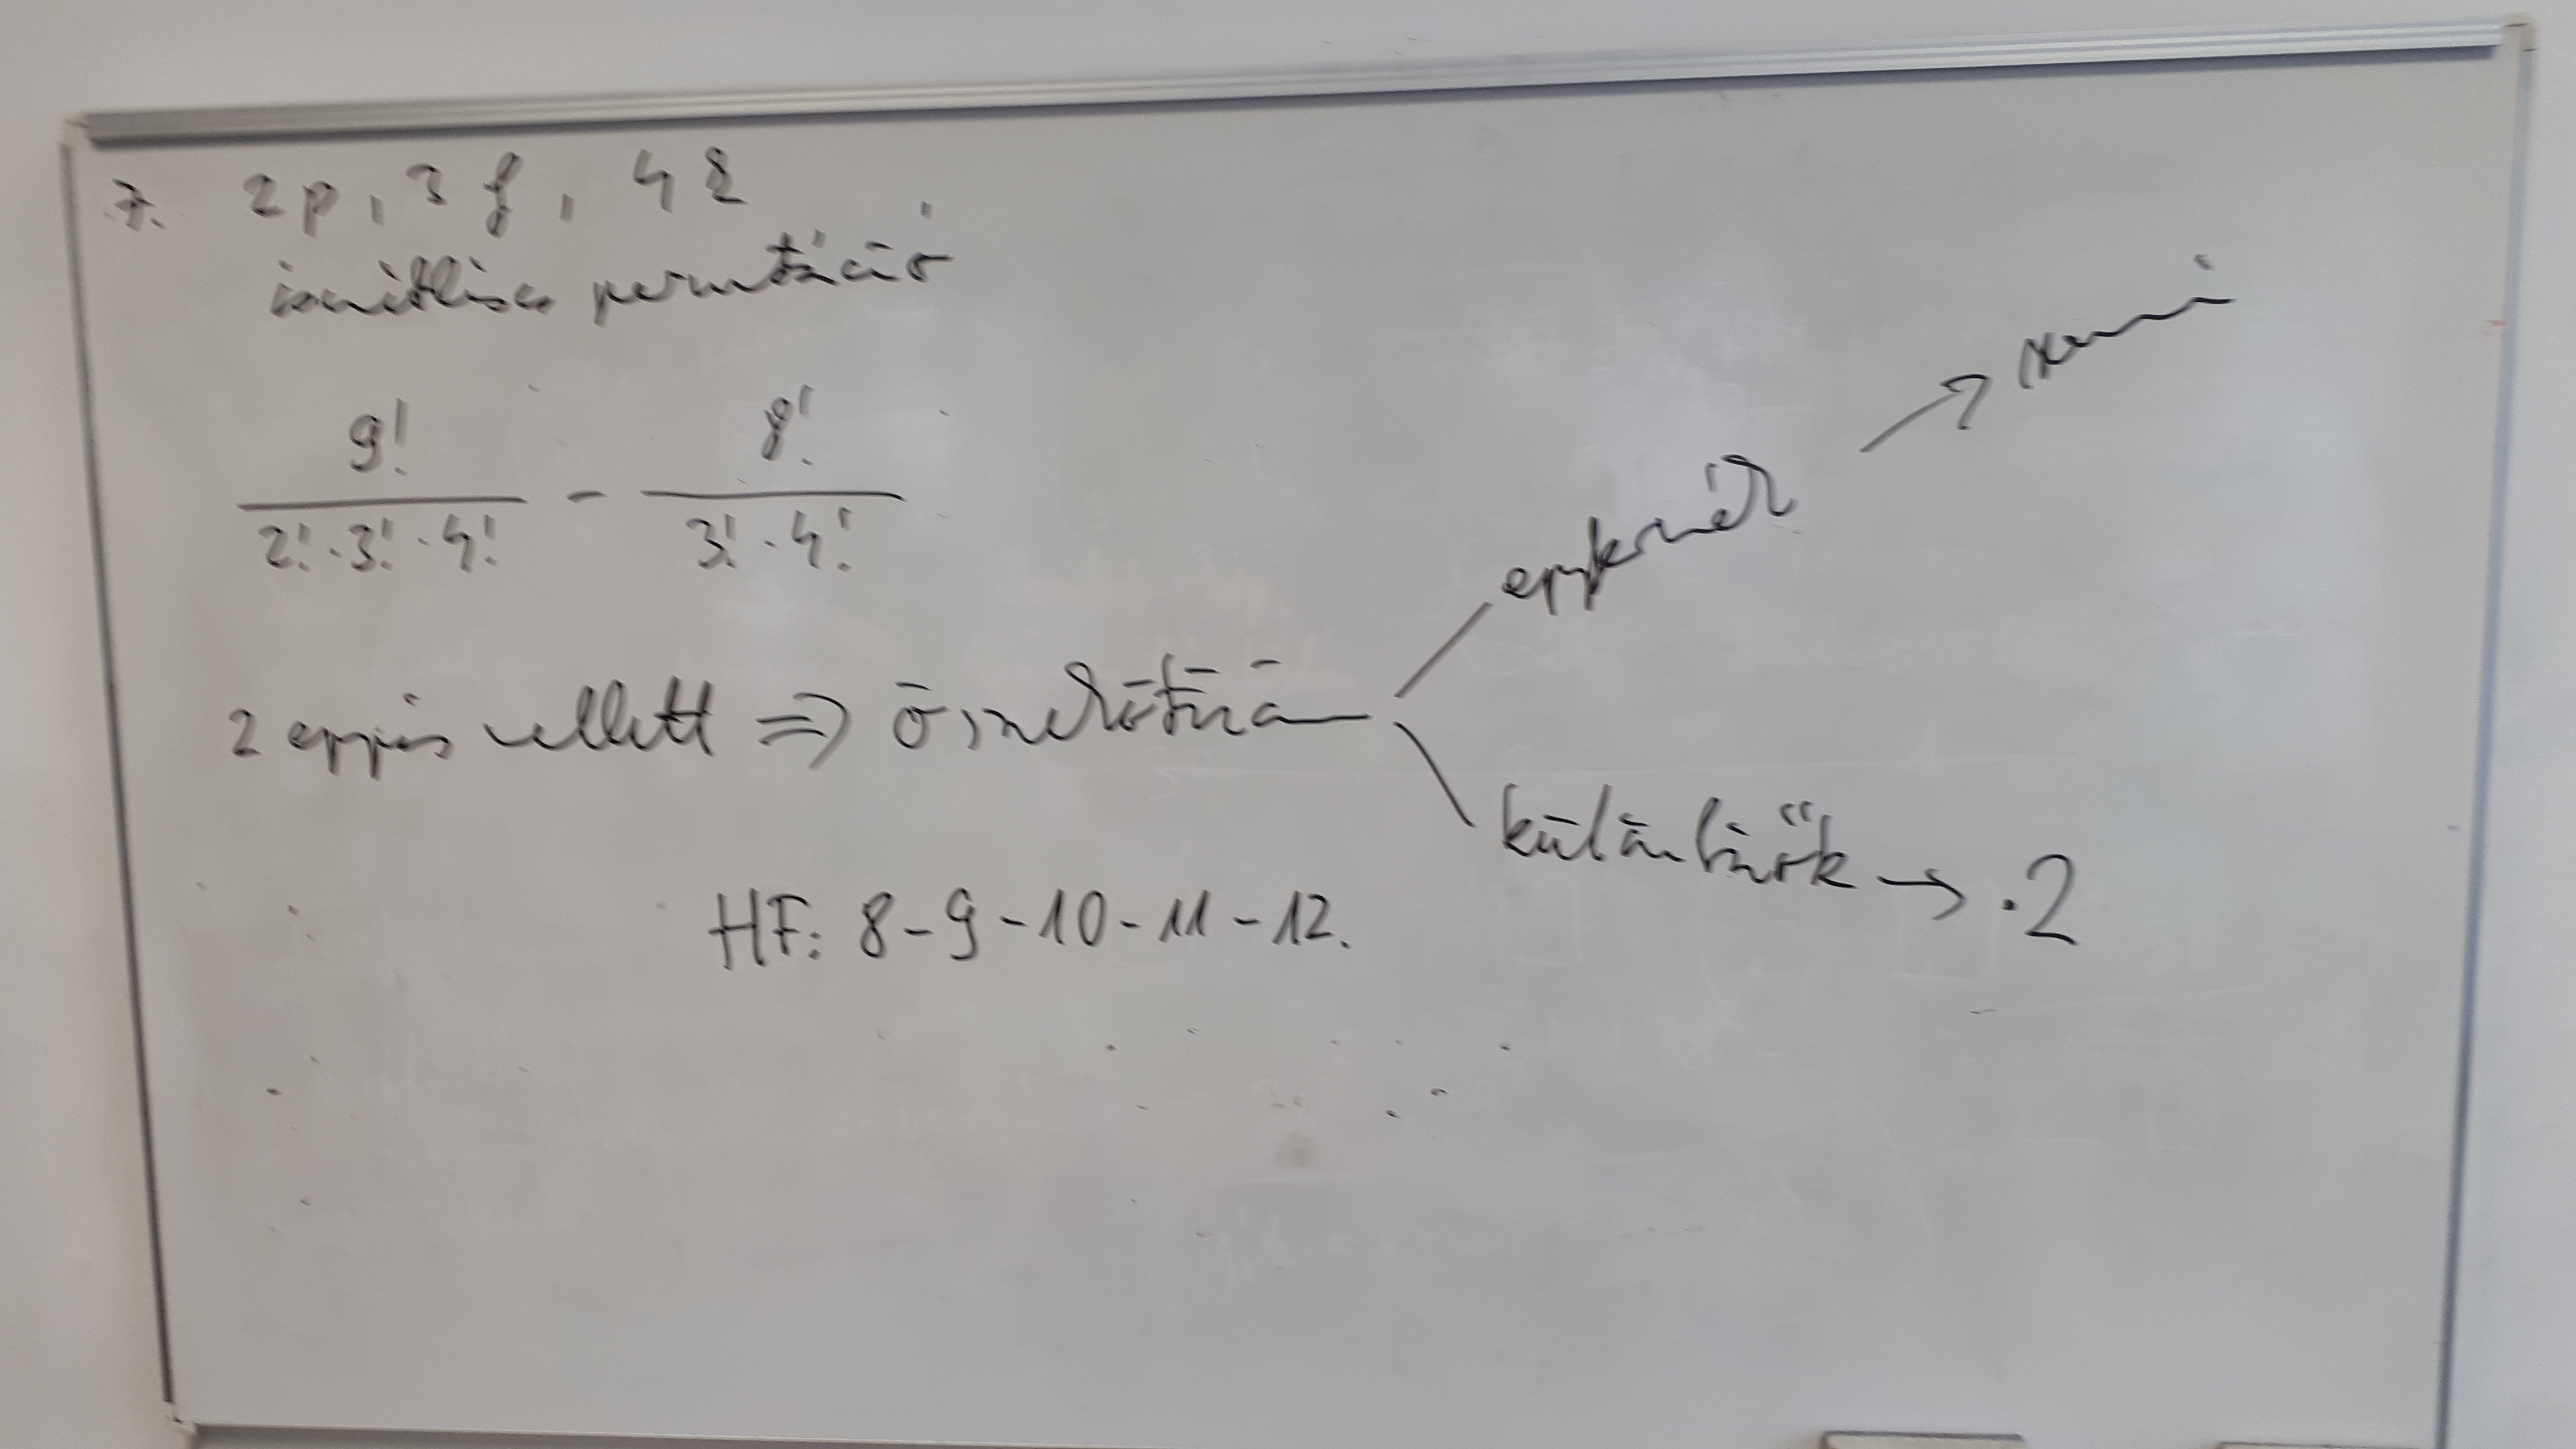 7. 2p, 3f, 4k
ismétléses permutáció
9! / (2!·3!·4!) - 8! / (3!·4!)
2 egymás mellett ⇒ összekötözni
egyformák → semmi
különbözők → ·2
HF: 8-9-10-11-12.